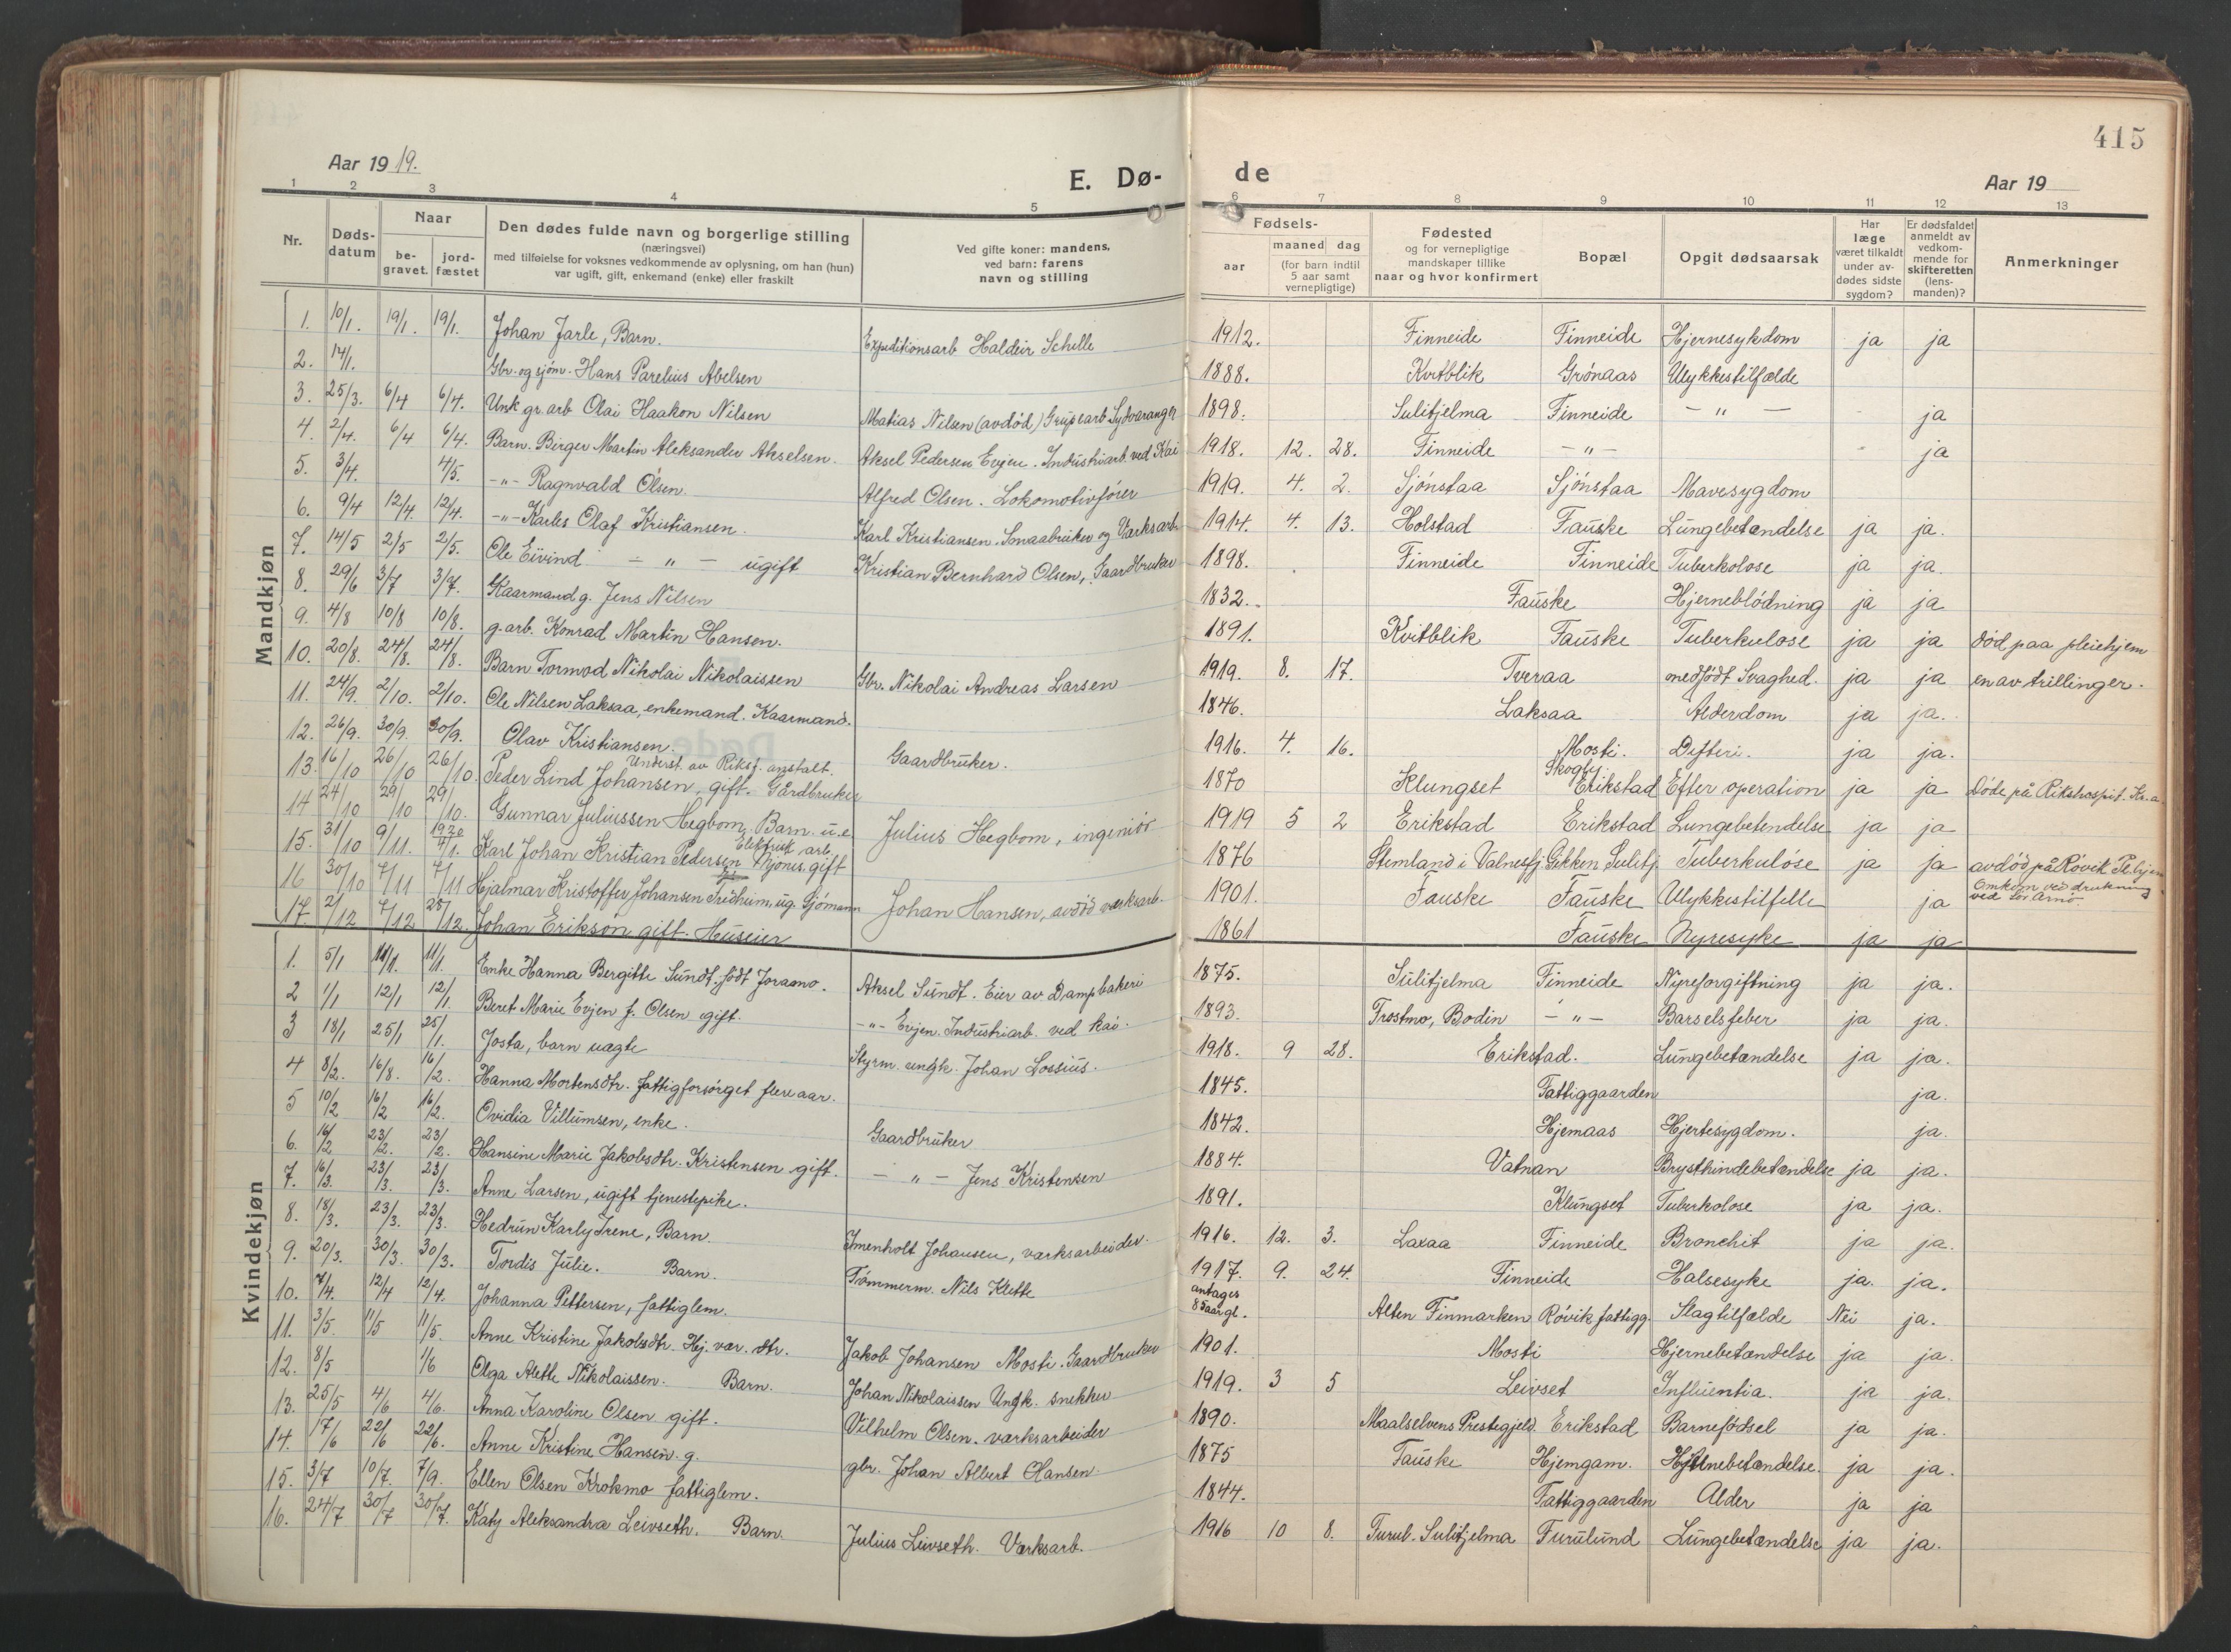 415
Aar 1919.
E. Dø-
de
Aar 19
1 2 3 4 5 6 7 8 9 10 11 12 13
Nr.
Døds-
datum
Naar
be-
gravet.
jord-
fæstet
Den dødes fulde navn og borgerlige stilling
(næringsvei)
med tilføielse for voksnes vedkommende av oplysning, om han (hun)
var ugift, gift, enkemand (enke) eller fraskilt
Ved gifte koner: mandens,
ved barn: farens
navn og stilling
Fødsels-
aar
maaned dag
(for barn indtil
5 aar samt
vernepligtige)
Fødested
og for vernepligtige
mandskaper tillike
naar og hvor konfirmert
Bopæl
Opgit dødsaarsak
Har
læge
været tilkaldt
under av-
dødes sidste
sygdom?
Er dødsfaldet
anmeldt av
vedkom-
mende for
skifteretten
(lens-
manden)?
Anmerkninger
Mandkjøn
1. 10/1. 19/1. 19/1. Johan Jarle, Barn. Expeditionsarb Haldeir Schelle 1912. Finneide Finneide Hjernesykdom ja ja
2. 14/1. Gbr. og sjøm. Hans Parelius Abelsen 1888. Kvitblik Grønaas Ulykkestilfælde
3. 25/3. 6/4 6/4. Unk gr. arb Olai Haakon Nilsen Matias Nilsen (avdød) Grubearb Sydvaranger 1898. Sulitjelma Finneide — " — ja
4. 2/4. 6/4 6/4. Barn. Birger Martin Aleksander Akselsen. Aksel Pedersen Evjen. Industriarb. ved Kai 1918. 12. 28. Finneide — " — ja
5. 3/4. 4/5. — " — Ragnvald Olsen. Alfred Olsen. Lokomotivfører 1919. 4. 2. Sjønstaa Sjønstaa Mavesygdom
6. 9/4 12/4. 12/4. — " — Karles Olaf Kristiansen. Karl Kristiansen. Smaabruker og Værksarb 1914. 4. 13. Holstad Fauske Lungebetændelse ja ja.
7. 14/5 2/5 2/5. Ole Eivind — " — ugift Kristian Bernhard Olsen, Gaardbruker 1898. Finneide Finneide Tuberkolose ja ja.
8. 29/6 3/7 3/7. Kaarmand g. Jens Nilsen 1832. Fauske Hjerneblødning ja ja
9. 4/8 10/8 10/8. g. arb. Konrad Martin Hansen. 1891. Kvitblik Fauske Tuberkulose ja ja død paa pleiehjem
10. 20/8. 24/8. 24/8. Barn Tormod Nikolai Nikolaissen Gbr. Nikolai Andreas Larsen 1919. 8. 17. Tveraa medfødt Svaghed. ja ja en av trillinger.
11. 24/9. 2/10. 2/10. Ole Nilsen Laksaa, enkemand. Kaarmand. 1846. Laksaa Alderdom ja ja.
12. 26/9. 30/9. 30/9. Olav Kristiansen. Gaardbruker. 1916. 4. 16. Mosti. Difteri. ja ja.
Underst. av Riksf. anstalt. Skogly
13. 16/10 26/10 26/10. Peder Lind Johansen, gift. Gårdbruker 1870 Klungset Erikstad Efter operation ja ja Døde på Rikshospit. Kr.a
14 24/10 29/10 29/10. Gunnar Juliussen Hegbom. Barn u.e. Julius Hegbom, ingeniør 1919 5 2 Erikstad Erikstad Lungebetendelse ja ja
1920 Elektrisk arb.
15. 31/10 9/11. 4/1. Karl Johan Kristian Pedersen gift 1876 Stemland i Valnesfj. Sulitj. Tuberkulóse ja ja avdød på Røvik
16 30/10 7/11 7/11 Hjalmar Kristoffer Johansen ug. Sjømann Johan Hansen, avdød værksarb. 1901. Fauske Fauske Ulykkestilfelle ja Omkom ved drukning ved
17 2/12 7/12 28/12. Johan Erikson gift. Huseier 1861 Fauske Nyresyke ja ja
Kvindekjøn
1. 5/1 11/1. 11/1. Enke Hanna Bergitte Sundt. født Joramo. Aksel Sundt. Eier av Dampbakeri 1875. Sulitjelma Finneide Nyreforgiftning ja ja.
2 1/1 12/1 12/1. Beret Marie Evjen f. Olsen gift. — " — Evjen. Industriarb. ved kai. 1893. Trostmo, Bodin — " — Barselsfeber ja ja.
3 18/1 25/1 25/1. Josta, barn uægte Styrm. ungk. Johan Lossius. 1918. 9 28. Erikstad. Lungebetændelse ja ja.
4 8/2. 16/8. 16/2. Hanna Mortensdtr. fattigforsørget flere aar. 1845. Fattiggaarden ja.
5 10/2 16/2 16/2. Ovidia Villumsen, enke. Gaardbruker 1842. Hjemaas Hjertesygdom. ja.
6. 16/2 23/2. 23/2. Hansine Marie Jakobsdtr. Kristensen gift. — " — Jens Kristensen 1884. Vatnan Brysthindebetændelse ja ja.
7. 16/3. 23/3. 23/3. Anne Larsen, ugift tjenestepike. 1891. Klungset Tuberkolose ja ja.
8. 18/3. 23/3. 23/3. Hedrun Karly Irene, Barn. Imenholt Johansen, værksarbeider. 1916. 12. 3. Laxaa Finneide Bronchit ja ja.
9. 20/3. 30/3. 30/3. Tordis Julie. Barn. Tømmerm. Nils Klette 1917. 9. 24. Finneide Halsesyke ja. ja.
10. 7/4. 12/4 12/4. Johanna Pettersen, fattiglem. antages 85 aar gl. Alten Finmarken Røvik fattigg. Slagtilfælde Nei ja.
11. 3/5. 11/5 11/5. Anne Kristine Jakobsdtr. Hj. vær. dtr. Jakob Johansen Mosti. Gaardbruker 1901. Mosti Hjernebetændelse ja ja.
12. 8/5 1/6 Olga Alette Nikolaissen. Barn. Johan Nikolaissen Ungk. snekker 1919. 3 5 Leivset Influentia. ja ja.
13. 25/5 4/6 4/6. Anna Karoline Olsen gift. Vilhelm Olsen. værksarbeider 1890. Maalselvens Prestegjeld. Erikstad Barnefødsel ja ja.
14. 17/6 22/6 22/6. Anne Kristine Hansen. g. gbr. Johan Albert Hansen. 1875 Fauske Hjemgam. Hjernebetændelse. ja ja.
15. 3/7 10/7. 7/9. Ellen Olsen Krokmo fattiglem. 1844. Fattiggaarden Alder ja ja
16. 24/7 30/7 30/7. Katy Aleksandra Leivseth. Barn. Julius Leivseth. Værksarb. 1916 10 8. Furul. Sulitjelma Furulund Lungebetændelse ja ja.